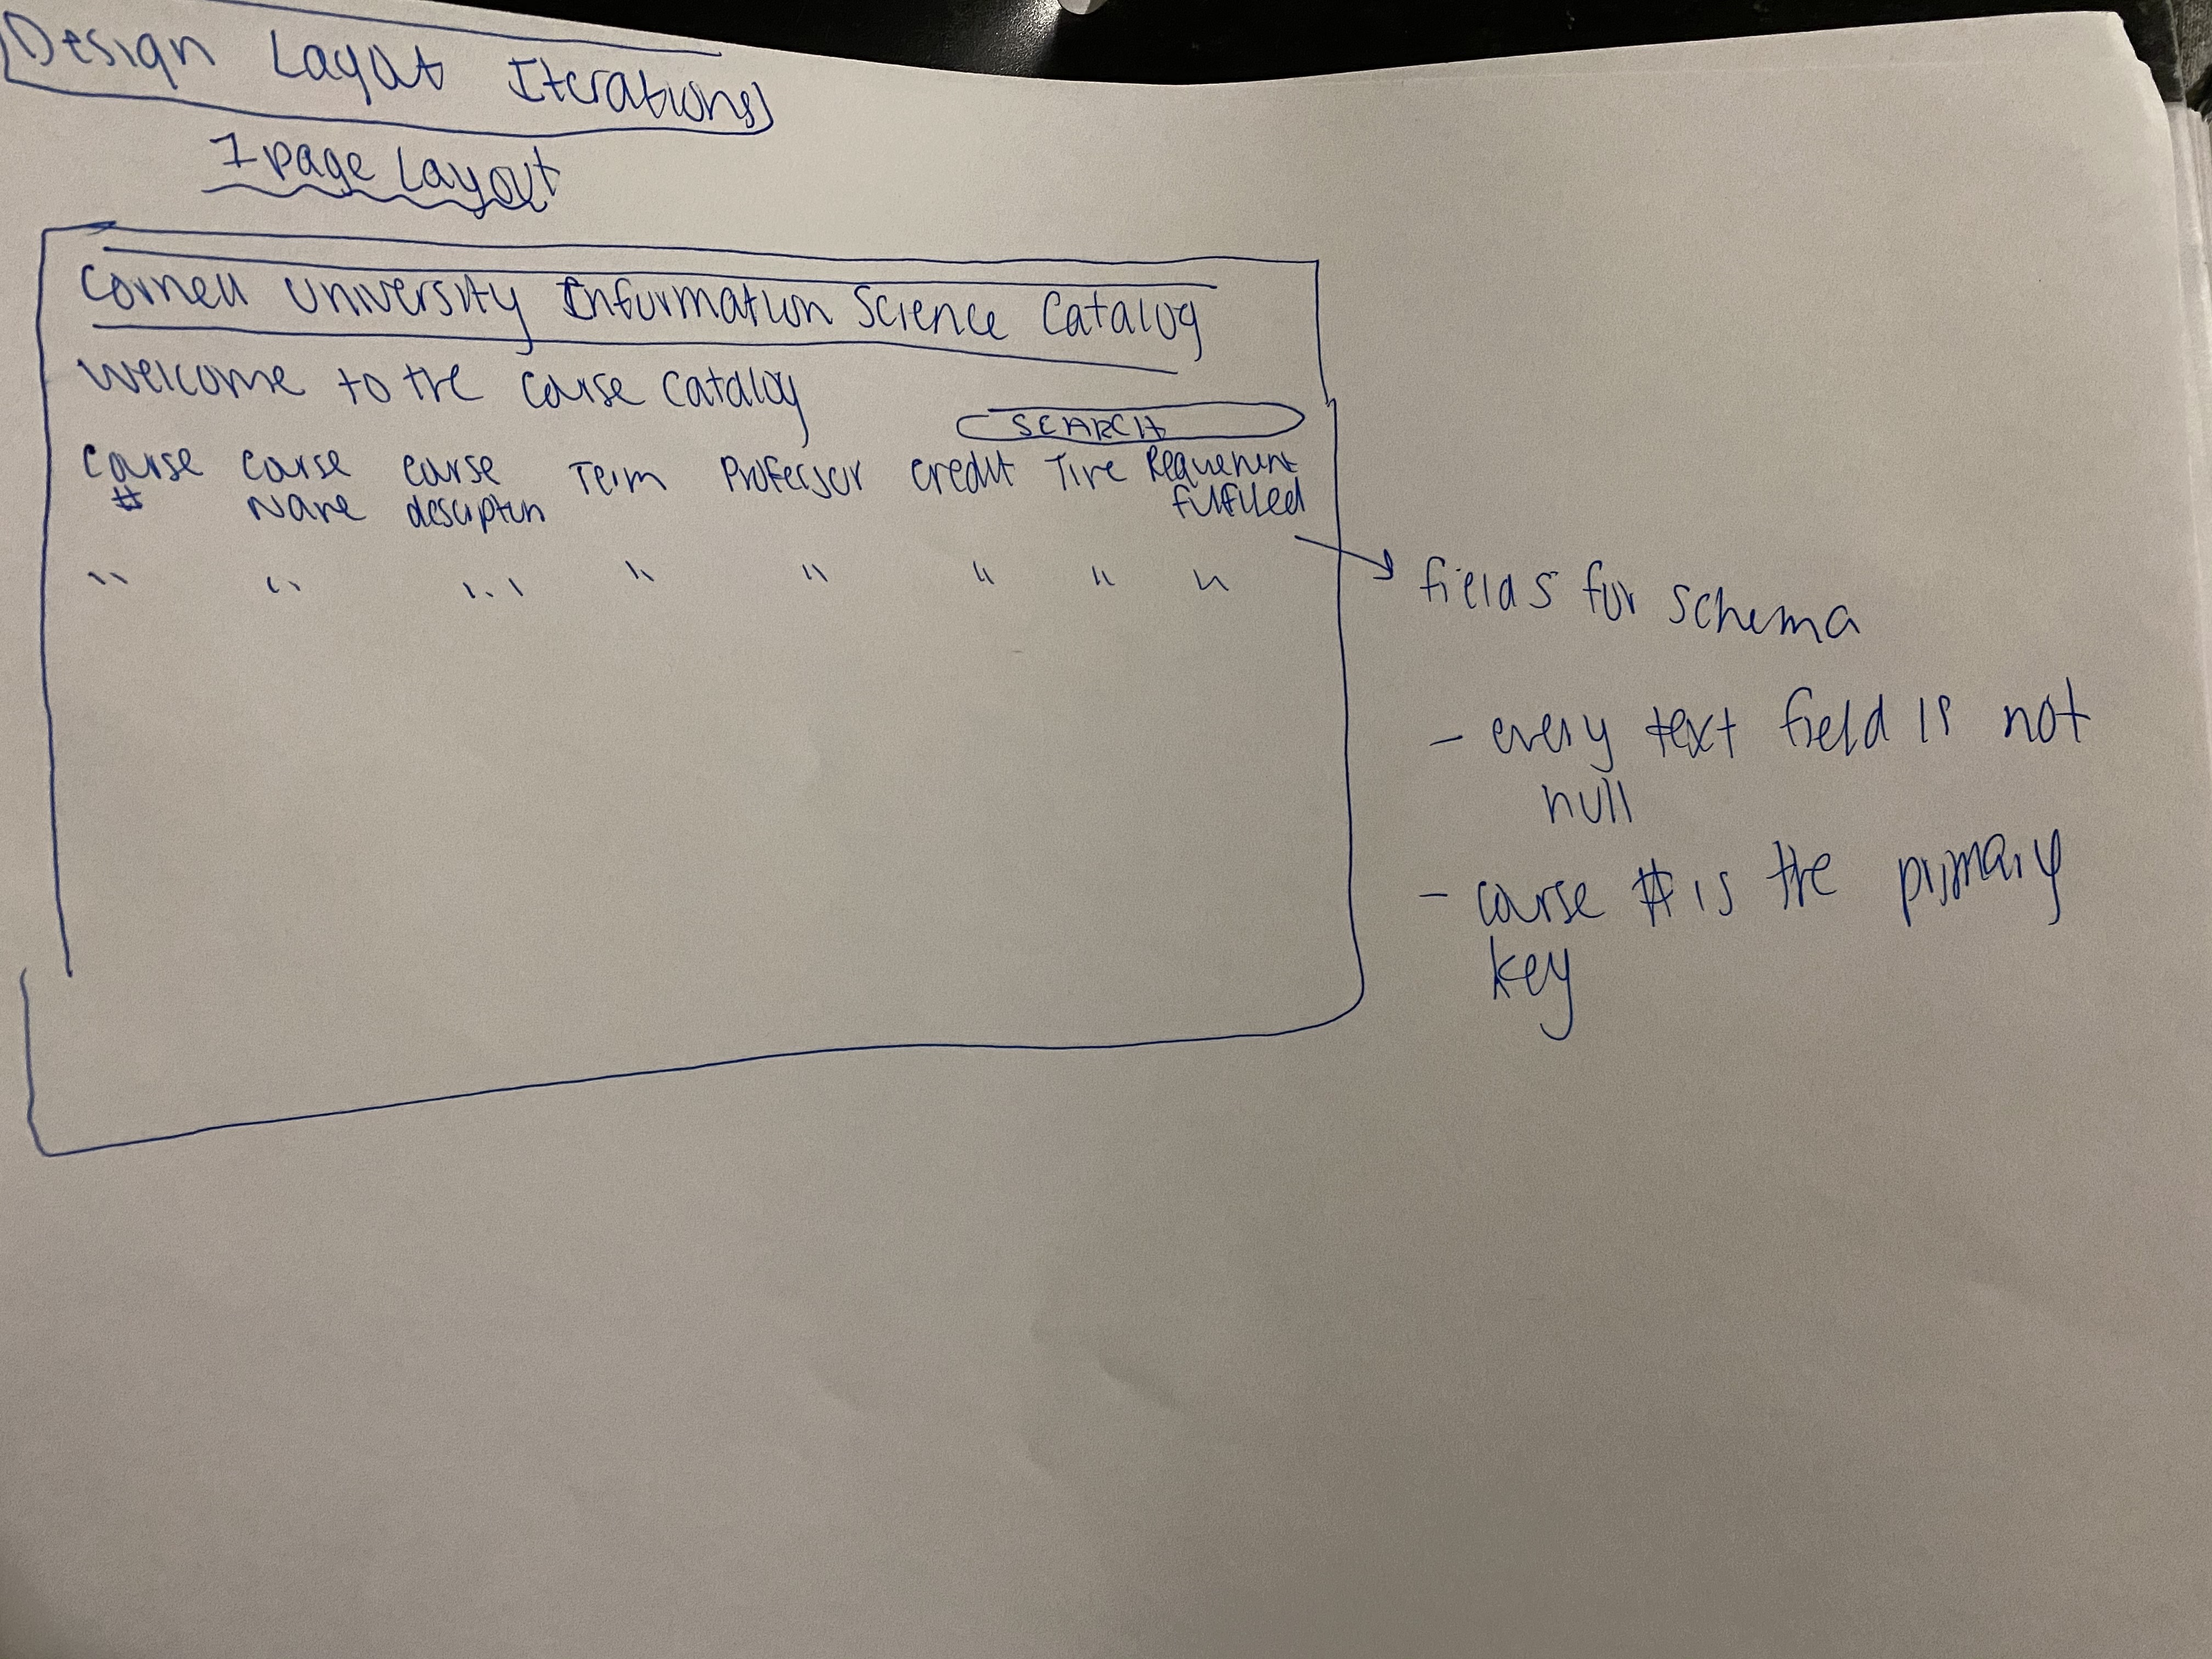 Design Layout Iterations
1 page Layout
Cornell University Information Science Catalog
Welcome to the course catalog
SEARCH
Course # Course Name Course description Term Professor Credit Time Requirement fulfilled
" " " " " " " "
fields for schema
- every text field is not
null
- course # is the primary
key